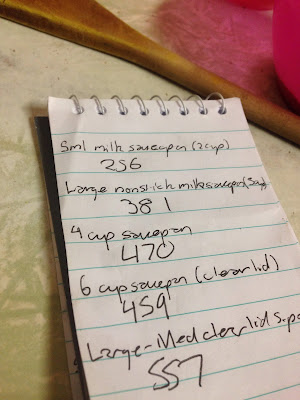 Sml milk saucepan (2cup)
256
Large nonstick milk saucepan (3cup)
381
4 cup saucepan
470
6 cup saucepan (clear lid)
459
Large-Med clear lid S.pa
557